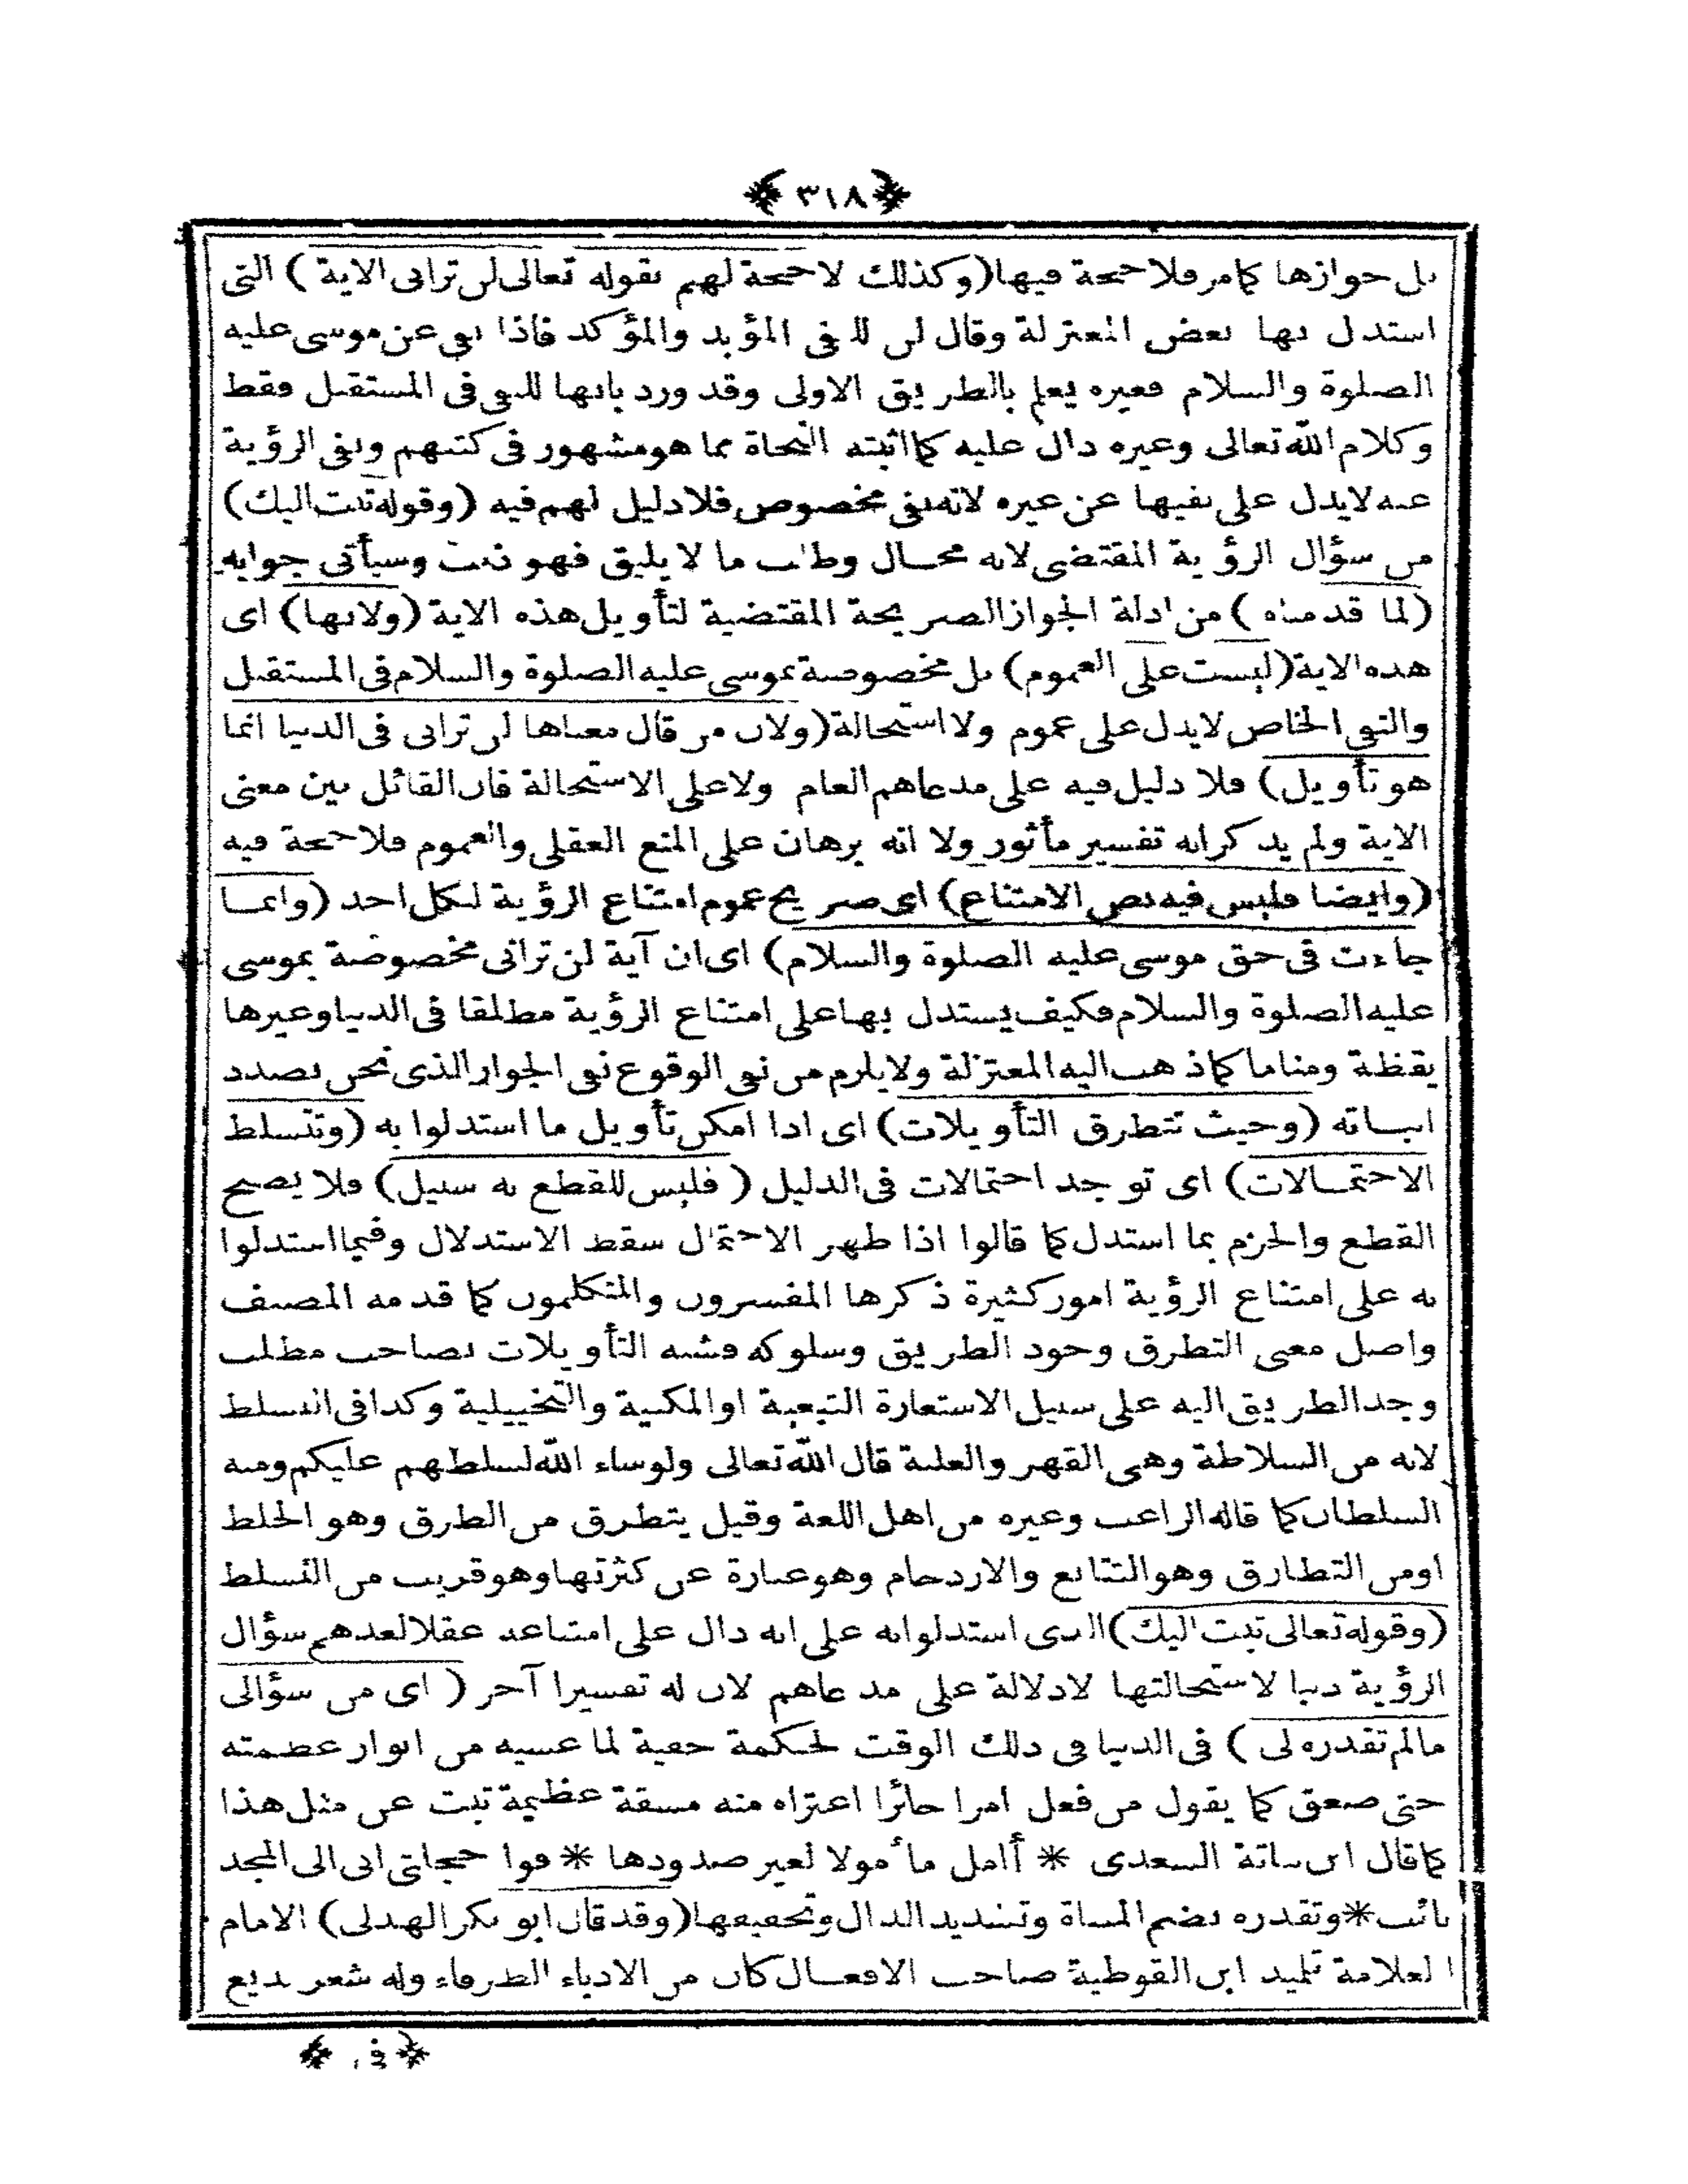 ﴿٣١٨﴾
بل جوازها كمامر فلا حجة فيها (وكذلك لا حجة لهم بقوله تعالى لن ترانى الاية) التى
استدل بها بعض المعتزلة وقال لن للنفى المؤبد والمؤكد فاذا نفى عن موسى عليه
الصلوة والسلام فغيره يعلم بالطريق الاولى وقد ورد بانها للنفى فى المستقبل فقط
وكلام الله تعالى وغيره دال عليه كما اثبته النحاة بما هو مشهور فى كتبهم ونفى الرؤية
عنه لايدل على نفيها عن غيره لانه نفى مخصوص فلا دليل لهم فيه (وقوله تبت اليك)
من سؤال الرؤية المقتضى لانه محال وطلب ما لا يليق فهو ذنب وسيأتى جوابه
(لما قدمناه) من ادلة الجواز الصريحة المقتضية لتأويل هذه الاية (ولانها) اى
هذه الاية (ليست على العموم) بل مخصوصة بموسى عليه الصلوة والسلام فى المستقبل
والنفى الخاص لايدل على عموم ولا استحالة (ولان من قال معناها لن ترانى فى الدنيا انما
هو تأويل) فلا دليل فيه على مدعاهم العام ولا على الاستحالة فان القائل بين معنى
الاية ولم يذكر انه تفسير مأثور ولا انه برهان على المنع العقلى والعموم فلا حجة فيه
(وايضا فليس فيه نص الامتناع) اى صريح عموم امتناع الرؤية لكل احد (وانما
جاءت فى حق موسى عليه الصلوة والسلام) اى ان آية لن ترانى مخصوصة بموسى
عليه الصلوة والسلام فكيف يستدل بها على امتناع الرؤية مطلقا فى الدنيا وغيرها
يقظة ومناما كما ذهب اليه المعتزلة ولايلزم من نفى الوقوع نفى الجواز الذى نحن بصدد
اثباته (وحيث تتطرق التأويلات) اى اذا امكن تأويل ما استدلوا به (وتتسلط
الاحتمالات) اى توجد احتمالات فى الدليل (فليس للقطع به سبيل) فلا يصح
القطع والجزم بما استدل كما قالوا اذا ظهر الاحتمال سقط الاستدلال وفيما استدلوا
به على امتناع الرؤية امور كثيرة ذكرها المفسرون والمتكلمون كما قدمه المصنف
واصل معنى التطرق وجود الطريق وسلوكه فشبه التأويلات بصاحب مطلب
وجد الطريق اليه على سبيل الاستعارة التبعية او المكنية والتخييلية وكذا فى التسلط
لانه من السلاطة وهى القهر والغلبة قال الله تعالى ولو شاء الله لسلطهم عليكم ومنه
السلطان كما قاله الراغب وغيره من اهل اللغة وقيل يتطرق من الطرق وهو الخلط
او من التطارق وهو التتابع والازدحام وهو عبارة عن كثرتها وهو قريب من التسلط
(وقوله تعالى تبت اليك) الذى استدلوا به على انه دال على امتناعه عقلا لعدهم سؤال
الرؤية ذنبا لاستحالتها لادلالة على مدعاهم لان له تفسيرا آخر (اى من سؤالى
مالم تقدره لى) فى الدنيا فى ذلك الوقت لحكمة خفية لما غشيه من انوار عظمته
حتى صعق كما يقول من فعل امرا جائزا اعتراه منه مشقة عظيمة تبت عن مثل هذا
كما قال ابن نباتة السعدى * أامل مأمولا لغير صدودها * فوا خجلتى انى الى المجد
تائب * وتقدره بضم المثناة وتشديد الدال وتخفيفها (وقد قال ابو بكر الهذلى) الامام
العلامة تلميذ ابن القوطية صاحب الافعال كان من الادباء الظرفاء وله شعر بديع
﴿فى﴾